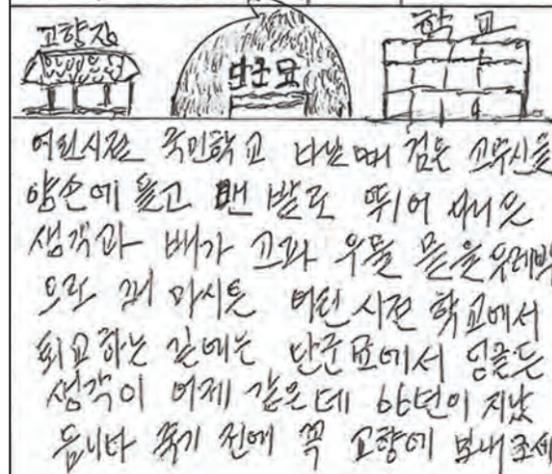 고향집 단군묘 학교
어린시절 국민학교 다닐때 검은 고무신을
양손에 들고 맨발로 뛰어 다니든
생각과 배가 고파 우물 물을
퍼 마시든 어린 시절 학교에서
퇴교 하는 길에는 단군묘에서 뒹굴든
생각이 어제 같은데 66년이 지났
읍니다 죽기 전에 꼭 고향에 보내 주세